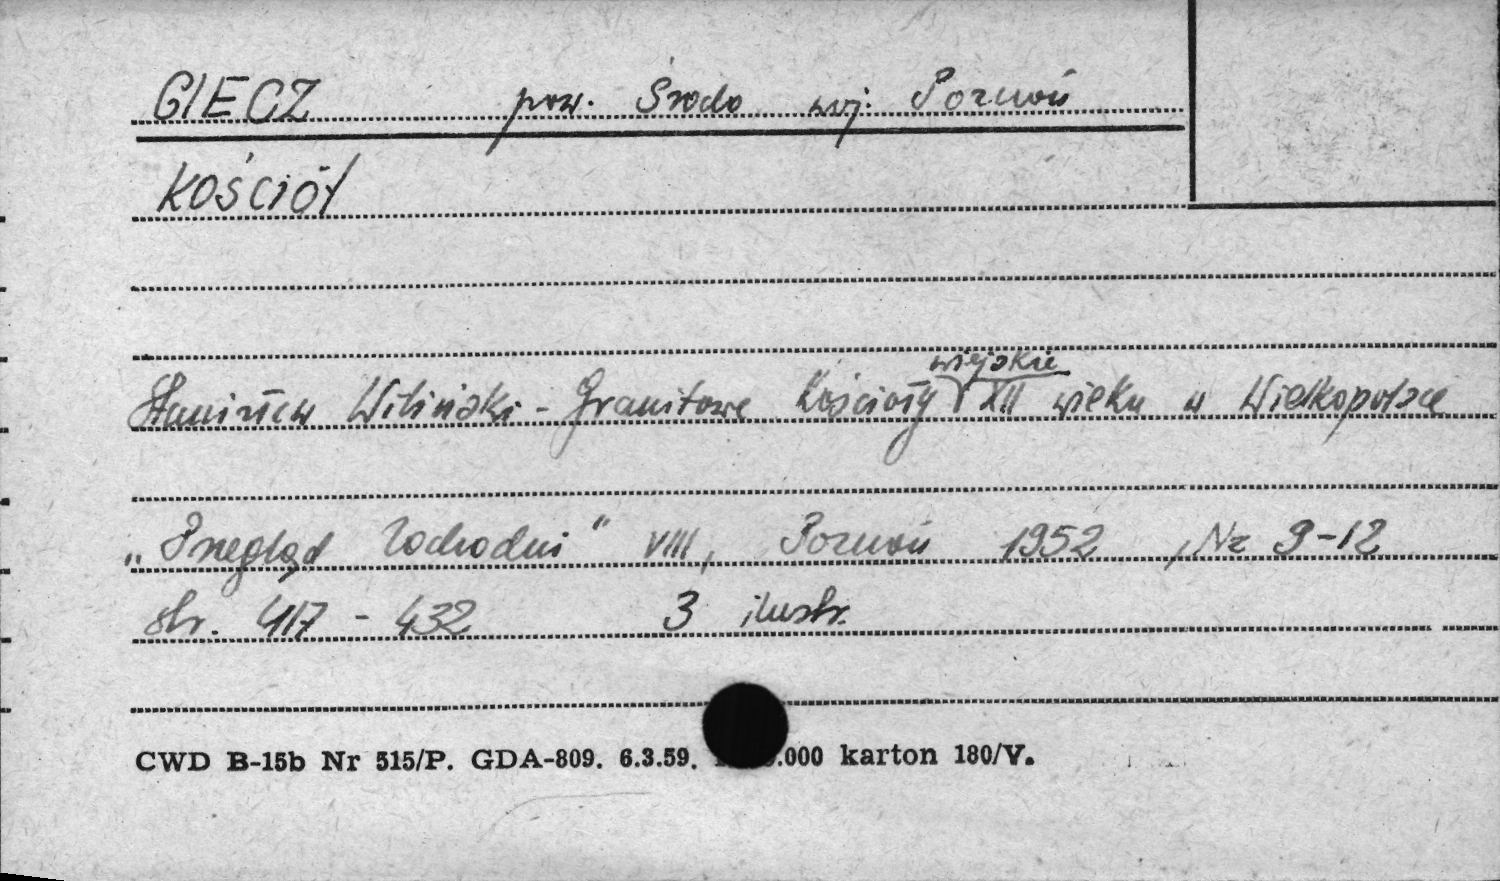 GIECZ pow. Środa woj. Poznań
KOŚCIÓŁ
wiejskie
Stanisław Wiliński - Granitowe Kościoły XII wieku w Wielkopolsce
„Przegląd Zachodni" VIII, Poznań 1952, Nr 9-12
str. 417 - 432 3 ilustr.
CWD B-15b Nr 515/P. GDA-809. 6.3.59. .000 karton 180/V.